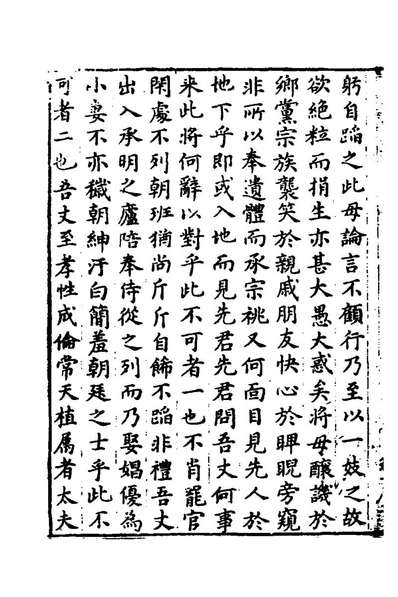 躬自蹈之此毋論言不顧行乃至以一妓之故
欲絶粒而捐生亦甚大愚大惑矣將毋釀譏於
鄉黨宗族襲笑於親戚朋友快心於睥睨旁窺
非所以奉遺體而承宗祧又何面目見先人於
地下乎即或入地而見先君先君問吾丈何事
来此將何辭以對乎此不可者一也不肖罷官
閑處不列朝班猶尚斤斤自飾不蹈非禮吾丈
出入承明之廬陪奉侍從之列而乃娶娼優為
小妻不亦穢朝紳汙白簡羞朝廷之士乎此不
可者二也吾丈至孝性成倫常天植属者太夫